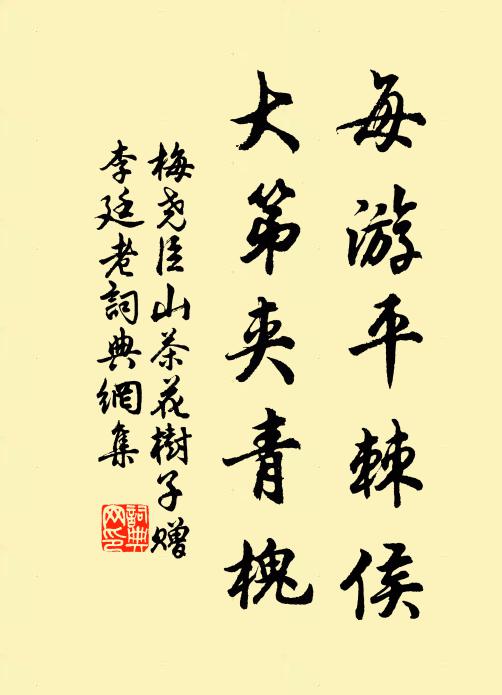 每游平棘侯
大第夹青槐
梅尧臣山茶花樹子赠
李廷老詞典網集
詞典網印